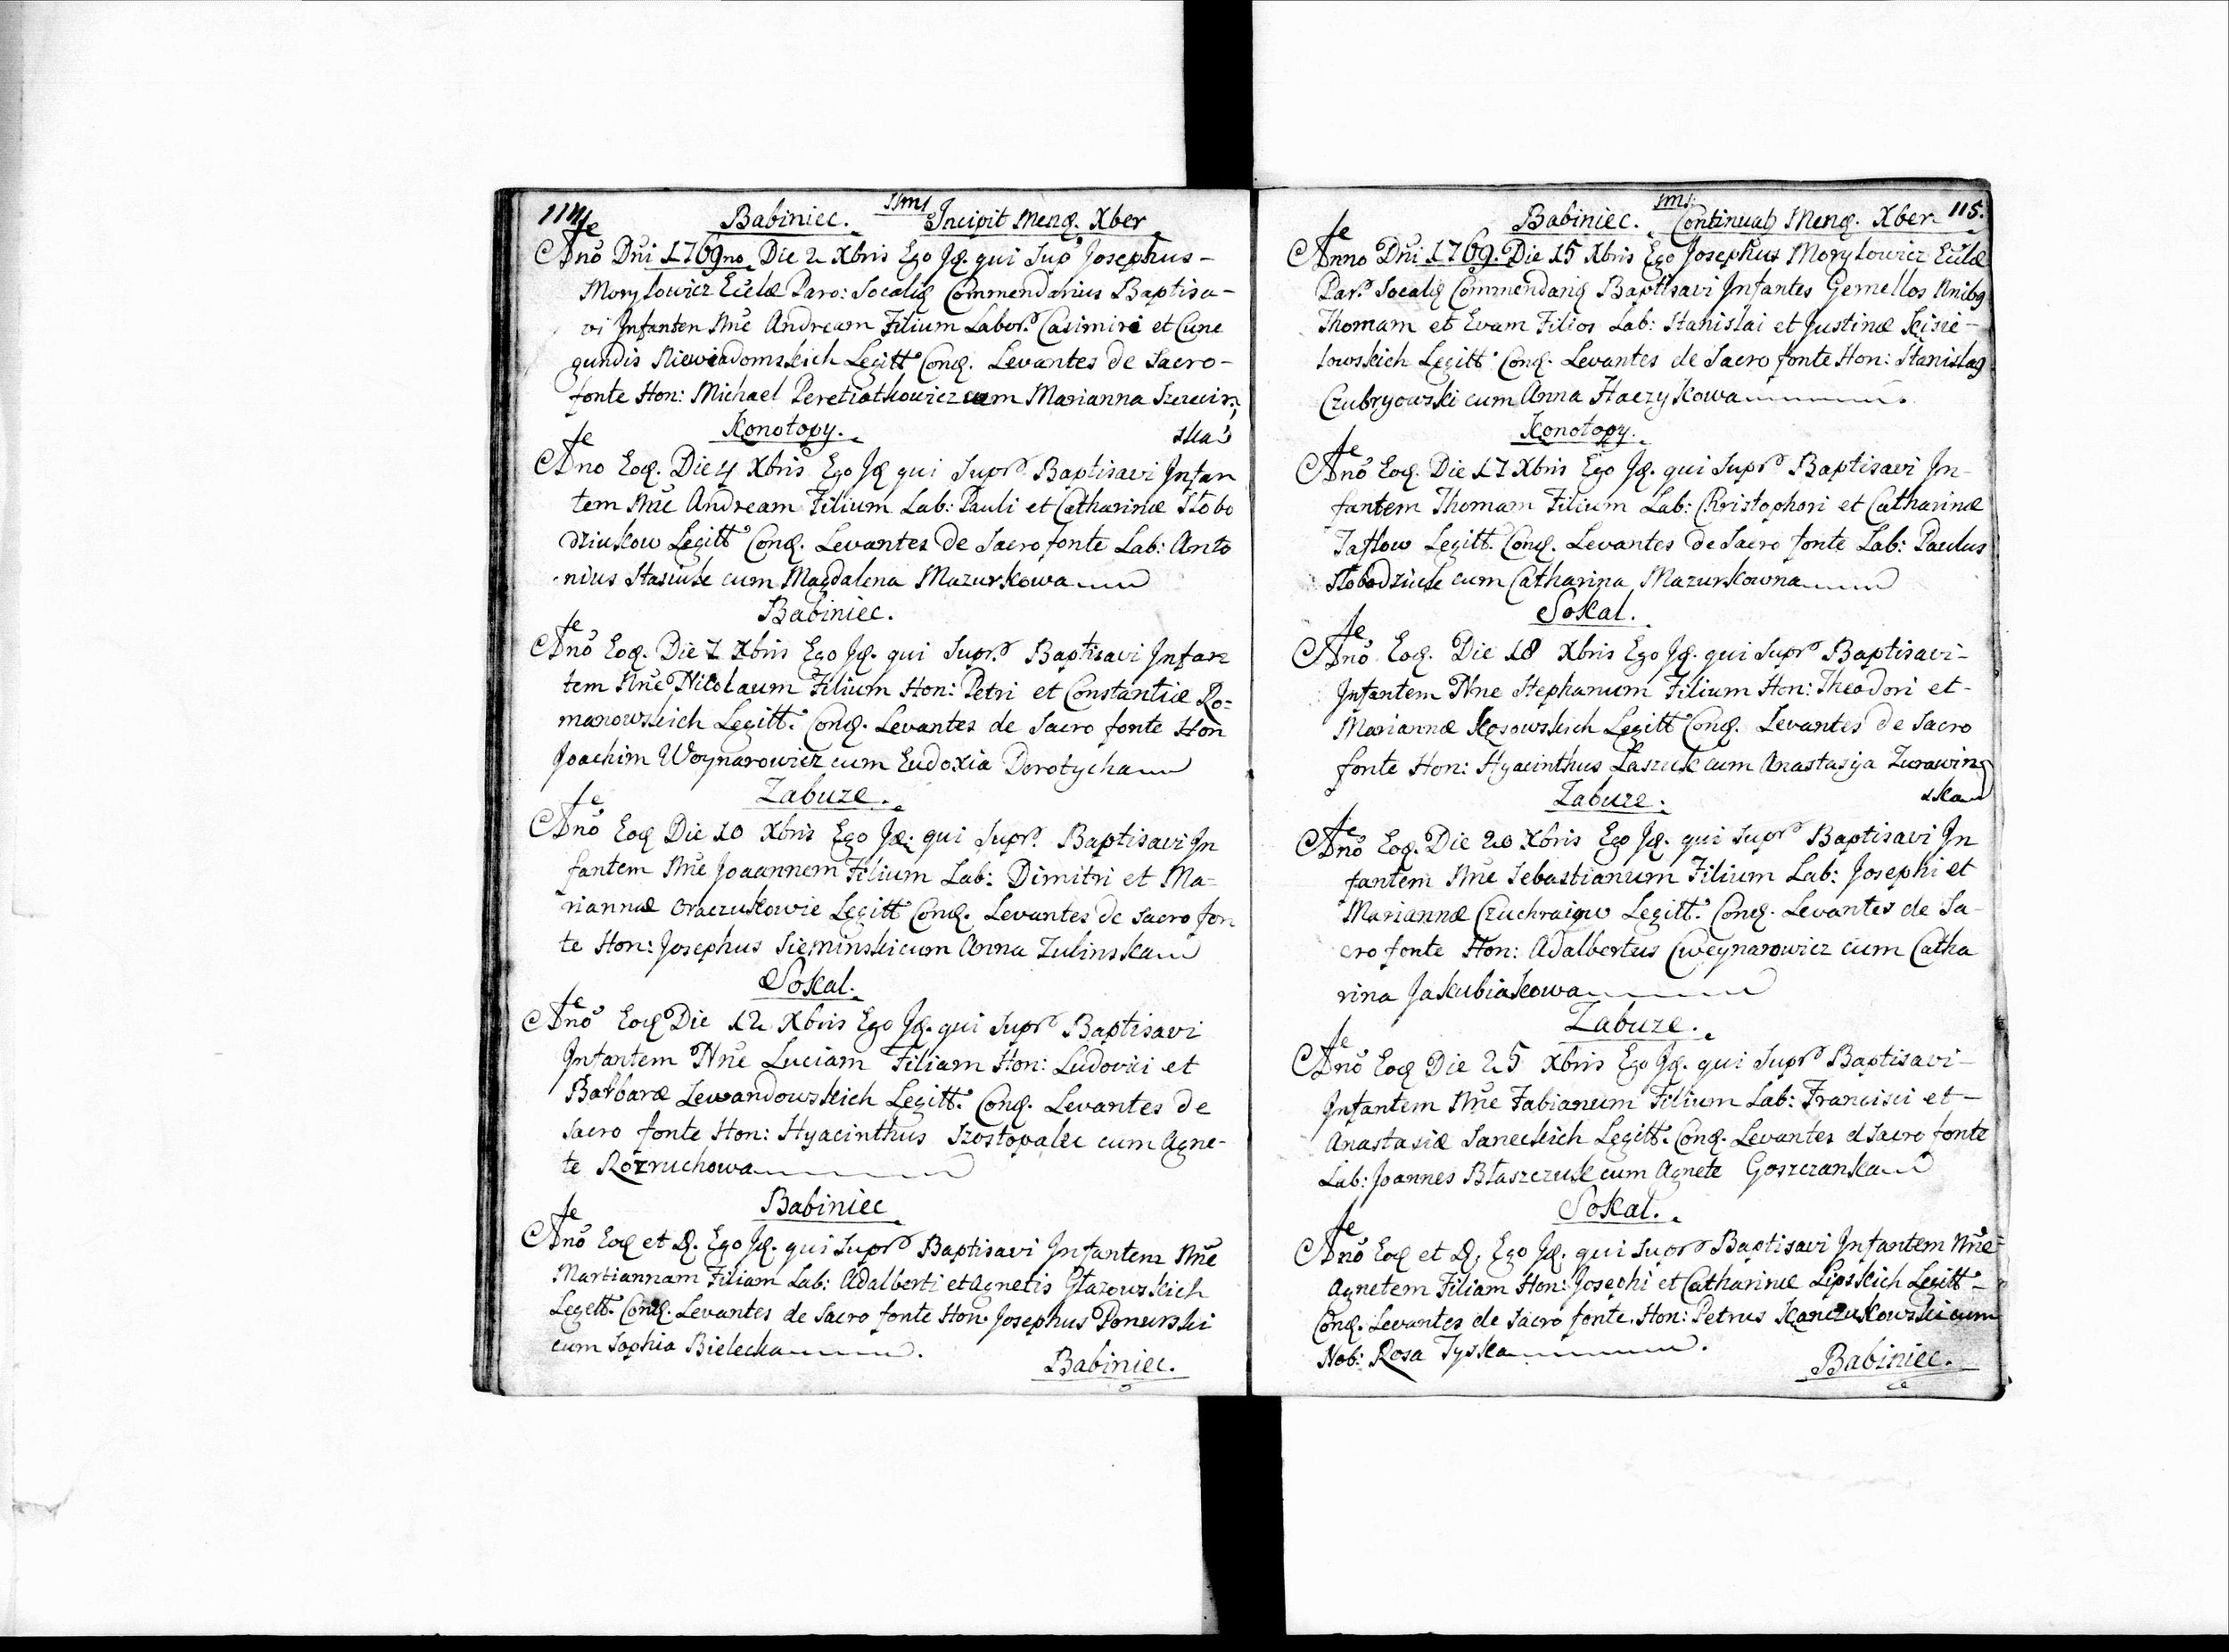 114
Babiniec. Incipit Mens. Xber
Ano Dni 1769no Die 2 Xbris Ego Id. qui Sup Josephus -
Morylowicz Eclæ Paro: Socalis Commendarius Baptisa -
vi Infanten Nne Andream Filium Labor. Casimiri et Cune
gundis Niewiadomskich Legitt Conq. Levantes de Sacro -
fonte Hon: Michael Peretiatkowicz cum Marianna Szczewin
ska
Konotopy.
Ano Eoq. Die 4 Xbris Ego Iq qui Supr Baptisavi Infan
tem Nne Andream Filium Lab: Pauli et Catharinæ Slobo
dziukow Legitt Conq. Levantes de Sacro fonte Lab: Anto
nius Stasiuk cum Magdalena Mazurkowa
Babiniec.
Ano Eoq. Die 7 Xbris Ego Iq. qui Supr. Baptisavi Infan
tem Nne Nicolaum Filium Hon: Petri et Constantiæ Ro=
manowskich Legitt. Conq. Levantes de Sacro fonte Hon
Joachim Woynarowicz cum Eudoxia Dorotycha
Zabuze.
Ano Eoq Die 10 Xbris Ego Iq. qui Supr. Baptisavi In
fantem Nne Joaannem Filium Lab: Dimitri et Ma=
riannæ Oraczukowie Legitt Conq. Levantes de Sacro fon
te Hon: Josephus Sieminski cum Anna Zulinska
Sokal.
Ano Eoq Die 12 Xbris Ego Iq. qui Supr Baptisavi
Infantem Nne Luciam Filiam Hon: Ludovici et
Barbaræ Lewandowskich Legitt. Conq. Levantes de
Sacro fonte Hon: Hyacinthus Szostopalec cum Agne-
te Rozruchowa
Babiniec
Ano Eoq et D. Ego Iq. qui Supr Baptisavi Infantem Nne
Martiannam Filiam Lab: Adalberti et Agnetis Głazowskich
Legett. Conq. Levantes de Sacro fonte Hon. Josephus Ponurski
cum Sophia Bielecka.
Babiniec.
Babiniec. Continuat Mens. Xber 115.
Anno Dni 1769. Die 15 Xbris Ego Josephus Morylowicz Eclæ
Par. Socalis Commendariq Baptisavi Infantes Gemellos Nnibq
Thomam et Evam Filios Lab: Stanislai et Justinæ Kisie -
lowskich Legitt Conq. Levantes de Sacro fonte Hon: Stanislaq
Czubryowski cum Anna Haczykowa.
Konotopy.
Ano Eoq. Die 17 Xbris Ego Iq. qui Supr Baptisavi In -
fantem Thomam Filium Lab: Christophori et Catharinæ
Legitt. Conq. Levantes de Sacro fonte Lab: Paulus
Slobodziuk cum Catharina Mazurkowna
Sokal.
Ano Eoq. Die 18 Xbris Ego Iq. qui Supr Baptisavi -
Infantem Nne Stephanum Filium Hon: Theodori et -
Mariannæ Kosowskich Legitt Conq. Levantes de Sacro
fonte Hon: Hyacinthus Laszuk cum Anastasya Zurawin
ska
Zabuze.
Ano Eoq. Die 20 Xbris Ego Iq. qui Supr Baptisavi In
fantem Nne Sebastianum Filium Lab: Josephi et
Mariannæ Czuchraiow Legitt. Conq. Levantes de Sa -
cro fonte Hon: Adalbertus Cweynarowicz cum Catha
rina Jakubiakowa
Zabuze.
Ano Eoq Die 25 Xbris Ego Iq. qui Supr Baptisavi -
Infantem Nne Fabianum Filium Lab: Francisci et -
Anastasiæ Saneckich Legitt. Conq. Levantes d Sacro fonte
Lab: Joannes Błaszczuk cum Agnete Goszczanska
Sokal.
Ano Eoq et D. Ego Iq. qui Supr Baptisavi Infantem Nne
Agnetem Filiam Hon: Josephi et Catharinæ Lipskich Legitt -
Conq. Levantes de Sacro fonte. Hon: Petrus Kanczukowski cum
Nob: Rosa Tyska.
Babiniec.